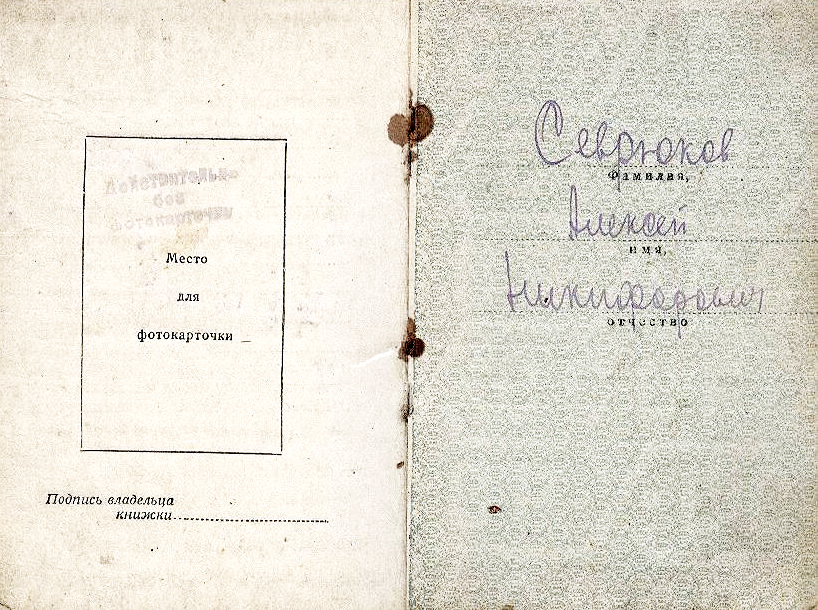 Действительно
без
фотокарточки
Место
для
фотокарточки
Подпись владельца
книжки
Севрюков
Фамилия,
Алексей
имя,
Никифорович
отчество